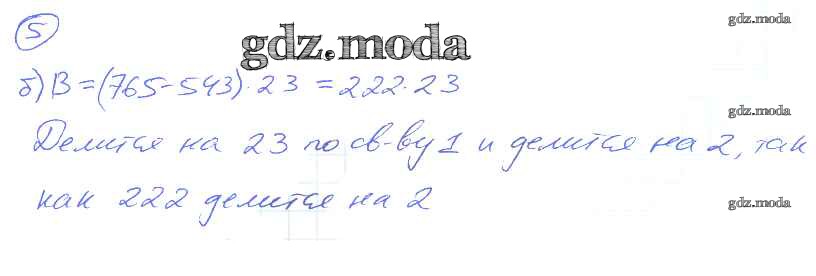 5
gdz.moda
gdz.moda
б) B = (765-543)·23 = 222·23
gdz.moda
Делится на 23 по св-ву 1 и делится на 2, так
как 222 делится на 2
gdz.moda